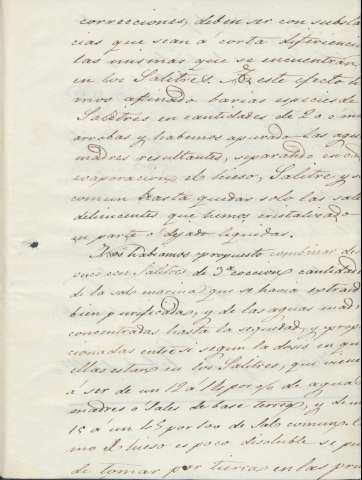 correcciones, deben ser con substa
cias que sean á corta diferencia
las mismas que se encuentran
en los Salitres. A este efecto he
mos afinado barias especies de
Salitres en cantidades de 20 o m
arrobas y habemos apurado las agu
madres resultantes, separando en ca
evaporacion el hueso, Salitre y s
comun hasta quedar solo las sale
delincentes que hemos cristalizado
en parte o dejado liquidas.
Nos habiamos propuesto combinar de
nuevo con Salitres de 3ª coccion cantidade
de la sal marina que se hacia extraid
bien purificada, y de las aguas madre
concentradas hasta la sequedad, y propor
cionadas entre si segun la dosis en que
ellas estan en los Salitres, que viene
á ser de un 12 á 14 por % de aguas
madres o Sales de base terrea, y de un
15 á un 45 por 100 de Sal comun. Co
mo el hueso es poco disoluble se pu
de tomar por tierra en las pru